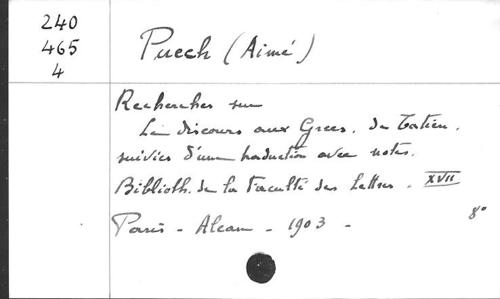 240
465
4
Puech (Aimé)
Recherches sur
Le discours aux Grecs. de Tatien.
suivies d'une traduction avec notes.
Biblioth. de la Faculté des Lettres. XVII
Paris - Alcan - 1903 -
8°